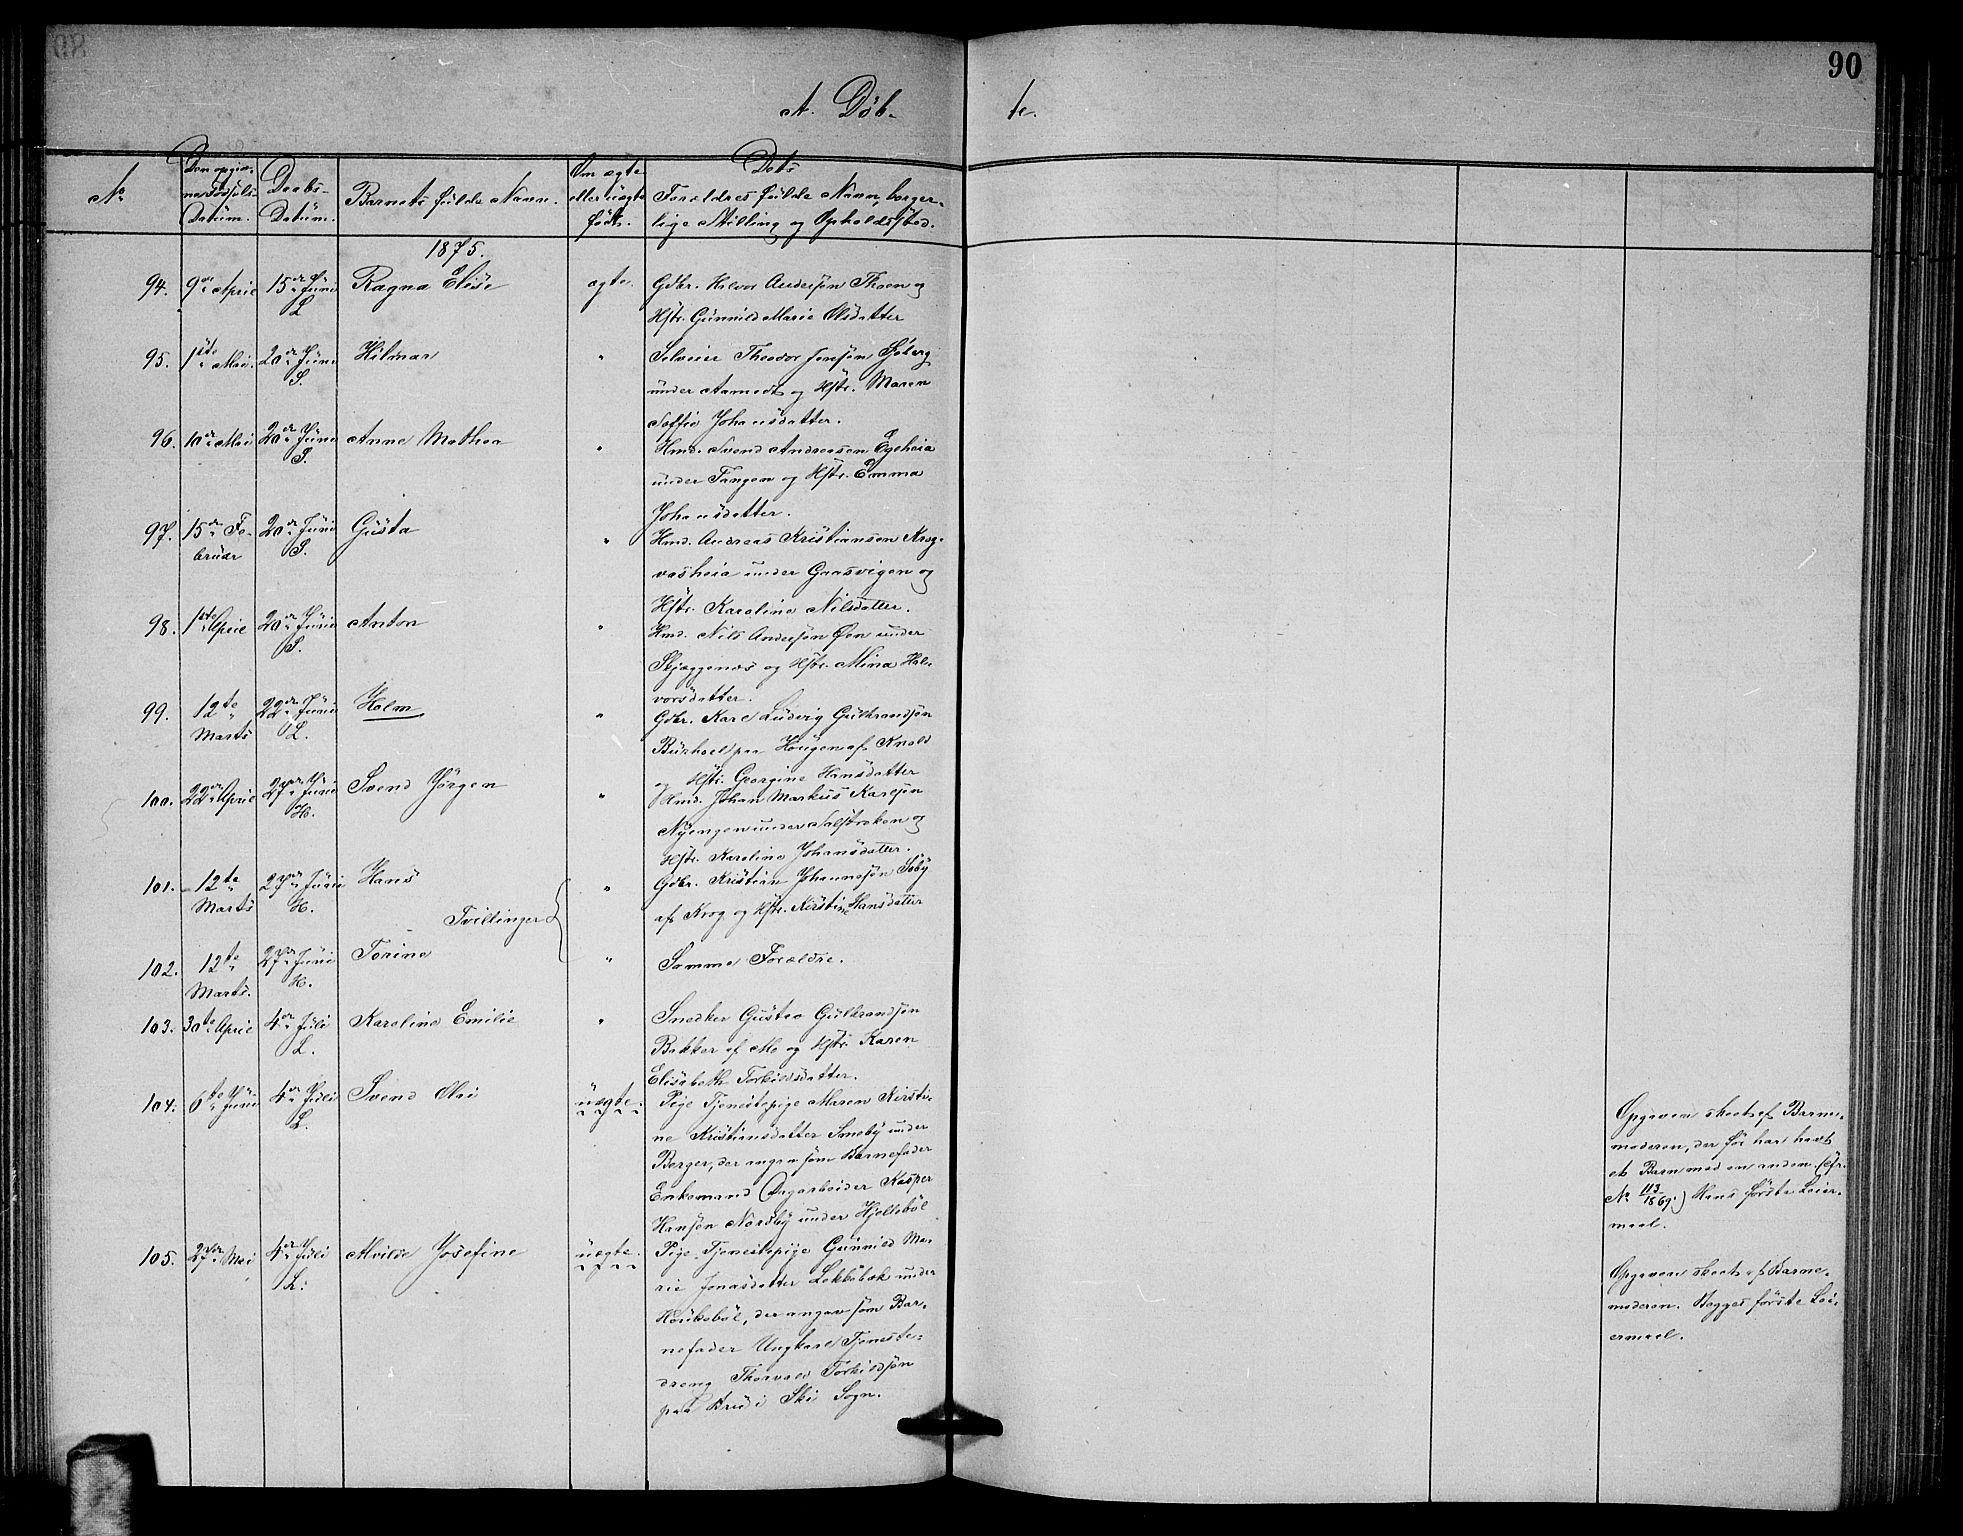 90
A. Døb-
te.
No
Den opgivne Fødsels-Datum.
Daabs-Datum.
Barnets fulde Navn.
Om ægte eller uægte født.
Dets Forældres fulde Navn, borger-
lige Stilling og Opholdssted.
1875.
94. 9de April 15de Juni L Ragna Elise ægte. Gdbr. Halvor Andersøn Thoen og
Hstr. Gunnild Marie Olsdatter
95. 1ste Mai. 20de Juni S. Hilmar " Selveier Theodor Jensøn Sjøberg
under Aamodt og Hstr. Maren
Soffie Johansdatter.
96. 10de Mai 20de Juni S. Anne Mathea " Hmd. Svend Andreasen Egeheia
under Tangen og Hstr. Emma
Johansdatter.
97. 15de Februar 20de Juni S. Gusta " Hmd. Andreas Kristiansen Krog-
vasheia under Gaasvigen og
Hstr. Karoline Nilsdatter.
98. 1ste April 20de Juni S. Anton " Hmd. Nils Andersøn Øen under
Skjæggenæs og Hstr. Mina Hal-
vorsdatter.
99. 12te Marts 22de Juni L. Holm " Gdbr. Karl Ludvig Gulbrandsøn
paa Haugen af Knold
og Hstr. Georgine Hansdatter
100. 22de April 27de Juni H. Svend Jørgen " Hmd. Johan Markus Karlsøn
Nyengen under og
Hstr. Karoline Johansdatter.
101. 12te Marts 27de Juni H. Hans " Gdbr. Kristian Johannesøn Søby
af Krog og Hstr. Kirstine Hansdatter
Tvillinger
102. 12te Marts. 27de Juni H. Torine " Samme Forældre.
103. 30te April 4de Juli L. Karoline Emilie " Snedker Gustav Gulbrandsøn
Bakker af Mo og Hstr. Karen
Elisabeth Torkildsdatter.
104. 6te Juni 4de Juli L. Svend Olai uægte. Pige Tjenestepige Maren Kirsti-
ne Kristiansdatter Smeby under
Berger, der angav som Barnefader
Enkemand Dagarbeider Kasper
Hansøn Nordby under Hjellebøl
Opgaven skeet af Barne-
moderen, der før har havt
et Barn med en anden (cfr.
No 113/1869.) Hans første Leier-
maal.
105. 27de Mai 4de Juli L. Milde Josefine uægte. Pige Tjenestepige Gunnild Ma-
rie Jonasdatter Løkkebæk under
Haukebøl, der angav som Bar-
nefader Ungkarl Tjeneste-
dreng Thorvald Torkildsøn
paa Brud i Ski Sogn.
Opgaven skeet af Barne-
moderen. Begges første Lei-
ermaal.